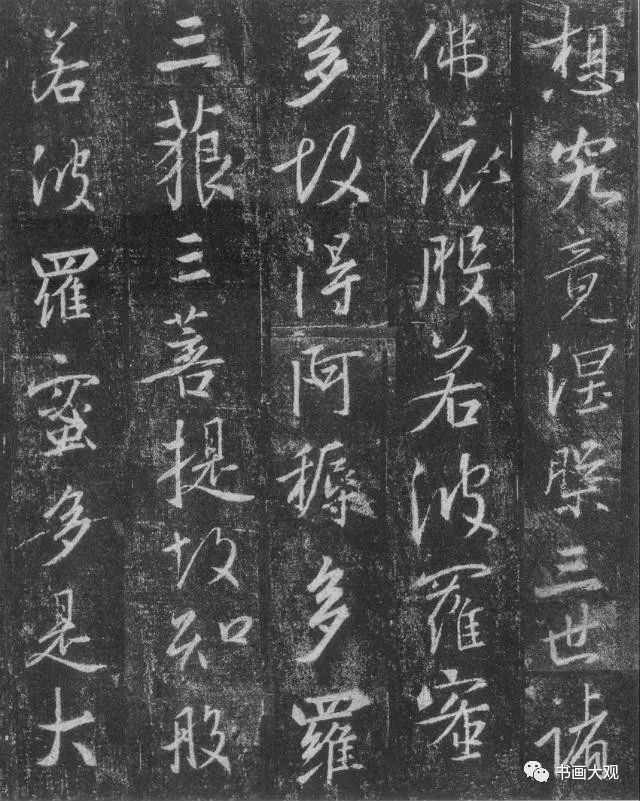 想究竟涅槃三世諸
佛依般若波羅蜜
多故得阿耨多羅
三藐三菩提故知般
若波羅蜜多是大
书画大观